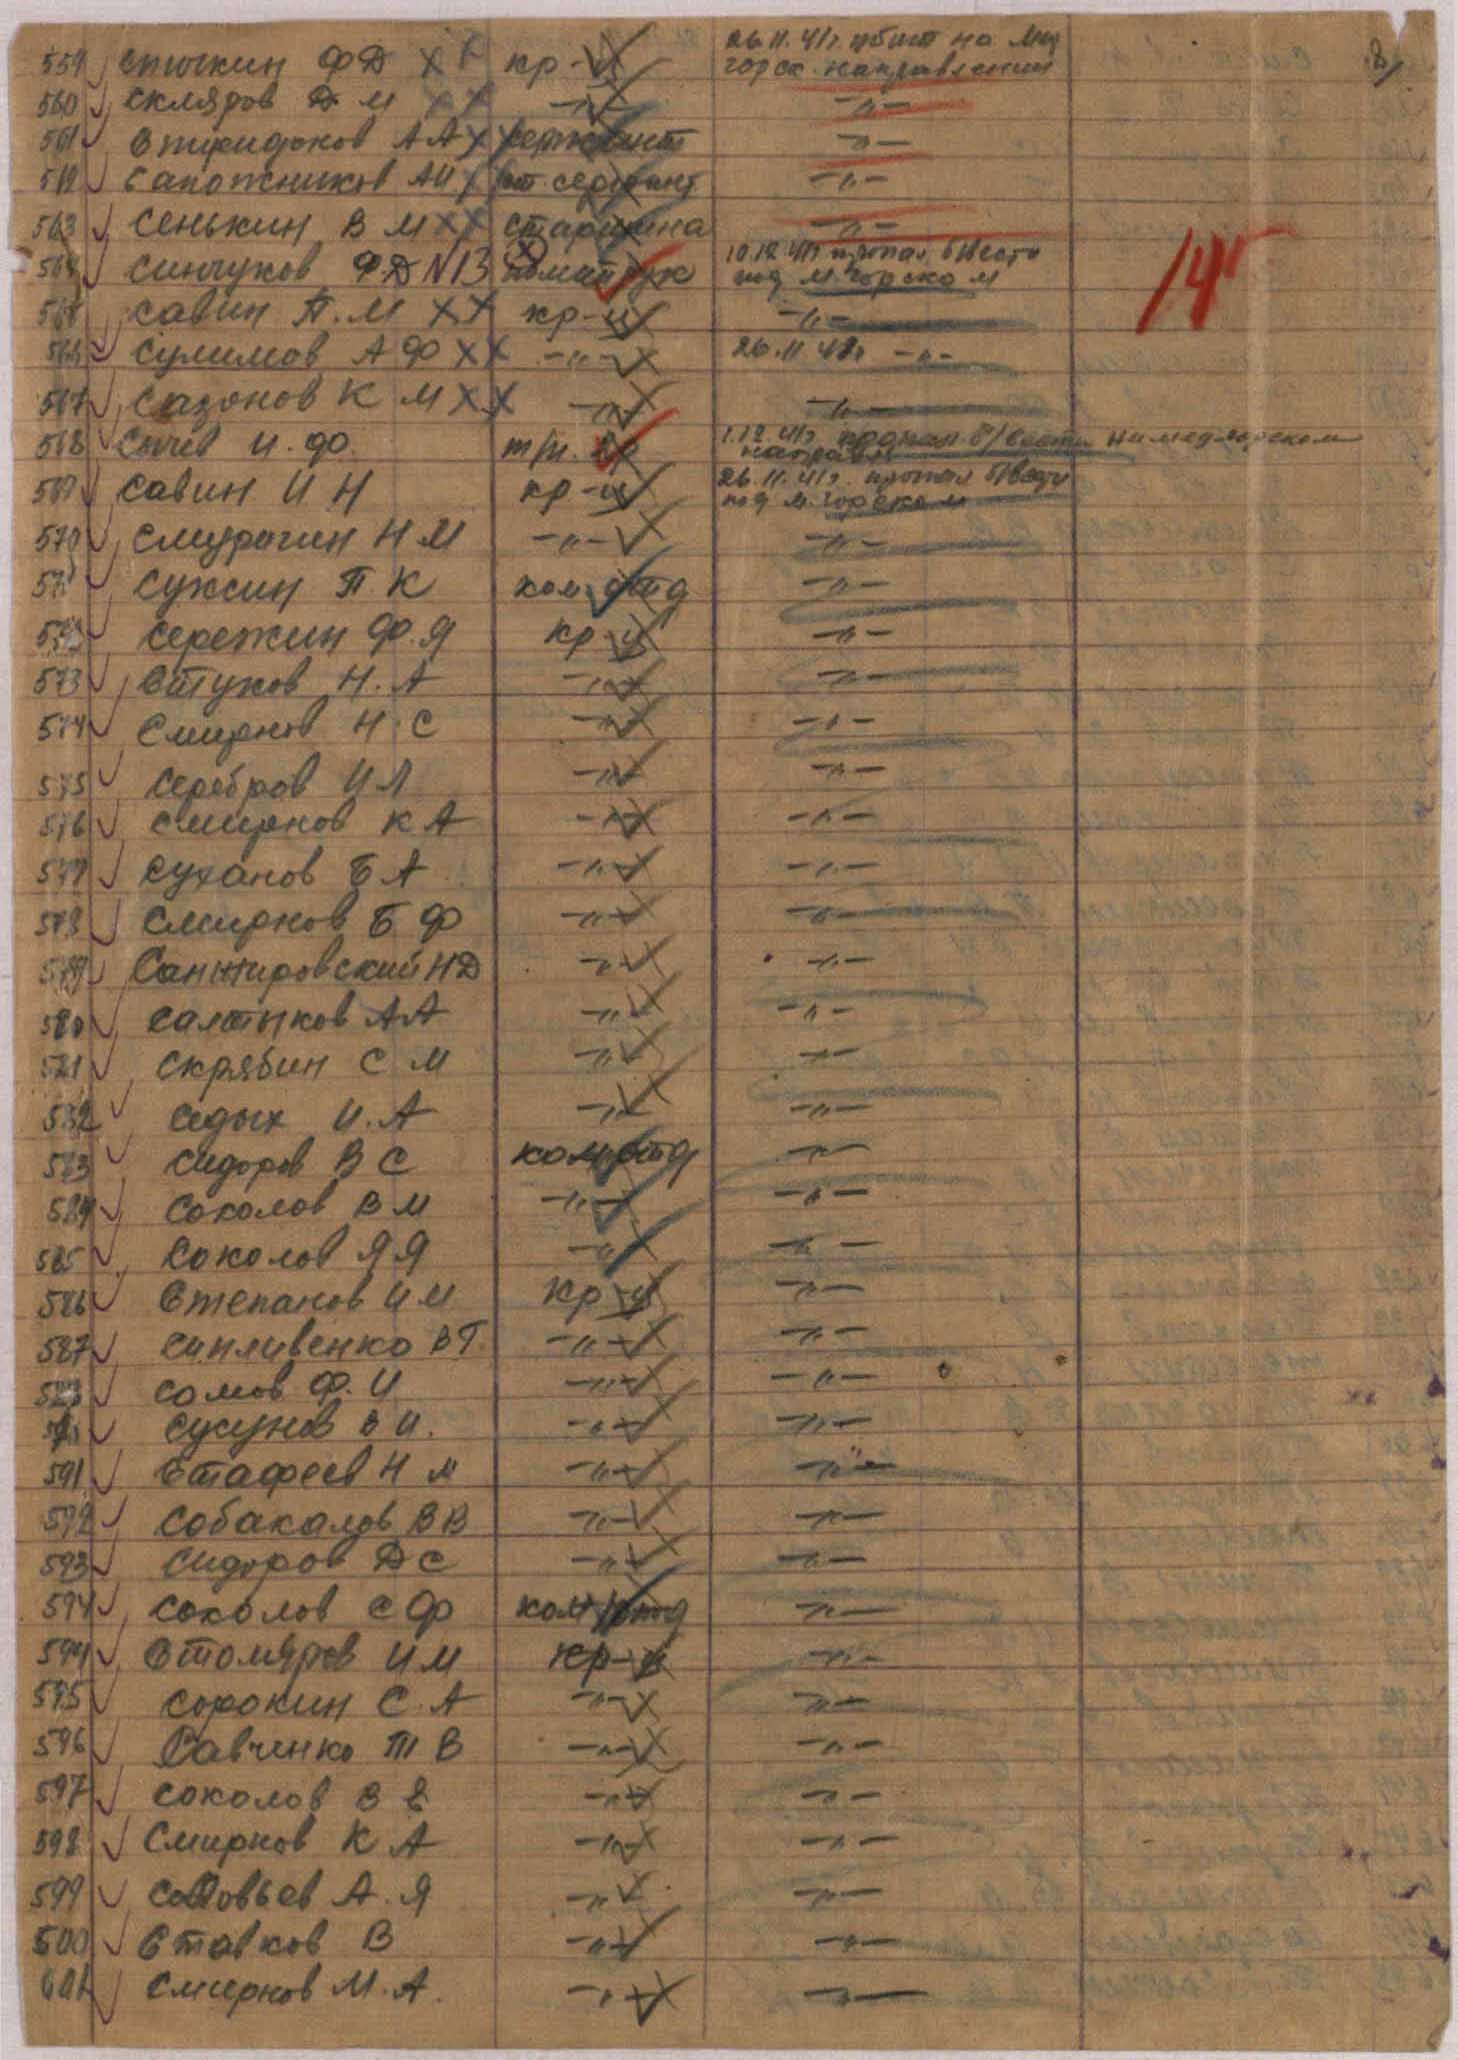 559 Спичкин Ф Д ХХ кр-ц 26.11.41г. убит на Мед
горск. направлении
560 Скляров Д М ХХ —"— —"—
561 А А Х сержант —"—
562 Сапожников А И ст. сержант —"—
563 Сенькин В М ХХ старшина —"—
564 Синчуков Ф Д N13 помполит рук 10.12.41г. пропал б/вести
под м.горском
565 Савин П. М ХХ кр-ц —"—
566 Сулимов А Ф ХХ —"— 26.11.41г. —"—
567 Сазонов К М ХХ —"— —"—
568 Сычев И. Ф. 1.12.41г. пропал б/вести на медгорском
направл
569 Савин И Н кр-ц 26.11.41г. пропал б/вести
под м.горском
570 Н М —"— —"—
571 Суксин П К ком. отд —"—
572 Сережин Ф. Я кр-ц —"—
573 Стуков Н. А —"— —"—
574 Смирнов Н. С —"— —"—
575 Серебров И Л —"— —"—
576 Смирнов К А —"— —"—
577 Суханов Б А —"— —"—
578 Смирнов Б Ф —"— —"—
579 Н Д —"— —"—
580 Салтыков А А —"— —"—
581 Скрябин С М —"— —"—
582 Седых И. А —"— —"—
583 Сидоров В С ком. отд —"—
584 Соколов В М —"— —"—
585 Соколов Я Я —"— —"—
586 Степанов И М кр-ц —"—
587 Сипливенко В Г —"— —"—
588 Сомов Ф. И —"— —"—
Сусунов В И. —"— —"—
591 Стафеев Н М —"— —"—
592 Собакалов В В —"— —"—
593 Сидоров Д С —"— —"—
594 Соколов С Ф ком. отд —"—
594 Столяров И М кр-ц —"—
595 Сорокин С. А —"— —"—
596 Савченко Т В —"— —"—
597 Соколов В Е —"— —"—
598 Смирнов К А —"— —"—
599 Соловьев А. Я —"— —"—
500 Ставков В —"— —"—
601 Смирнов М. А. —"— —"—